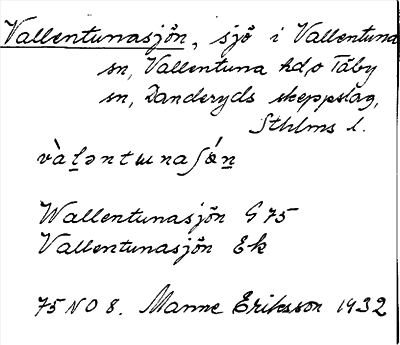 Vallentunasjön, sjö i Vallentuna
sn, Vallentuna hd, o Täby
sn, Danderyds skeppslag,
Sthlms l.
vàḷəntɯnaʃǽṉ
Wallentunasjön G 75
Vallentunasjön Ek
75 NO 8. Manne Eriksson 1932